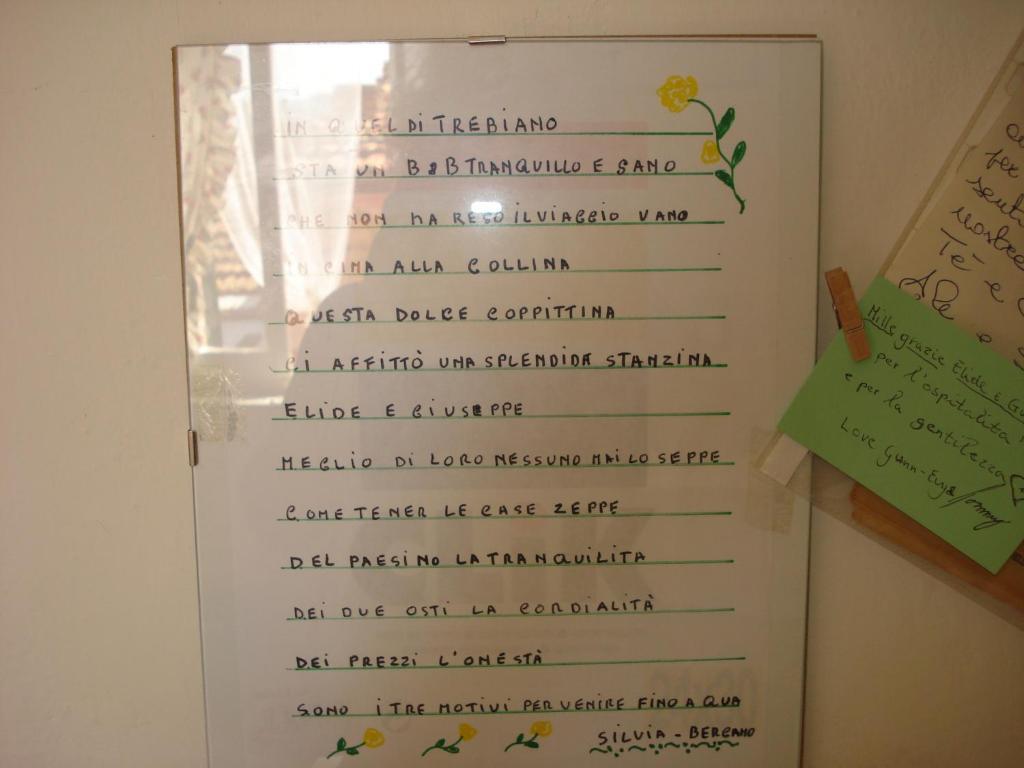 IN QUEL DI TREBIANO
STA UN B&B TRANQUILLO E SANO
CHE NON HA RESO IL VIAGGIO VANO
IN CIMA ALLA COLLINA
QUESTA DOLCE COPPITTINA
CI AFFITTÒ UNA SPLENDIDA STANZINA
ELIDE E GIUSEPPE
MEGLIO DI LORO NESSUNO MAI LO SEPPE
COME TENER LE CASE ZEPPE
DEL PAESINO LA TRANQUILITA
DEI DUE OSTI LA CORDIALITÀ
DEI PREZZI L'ONESTÀ
SONO I TRE MOTIVI PER VENIRE FINO A QUA
SILVIA - BERGAMO
per
nostre
Te è
Mille grazie Elide e
per l'ospitalita
e per la gentilezza
Love Gunn-Eva